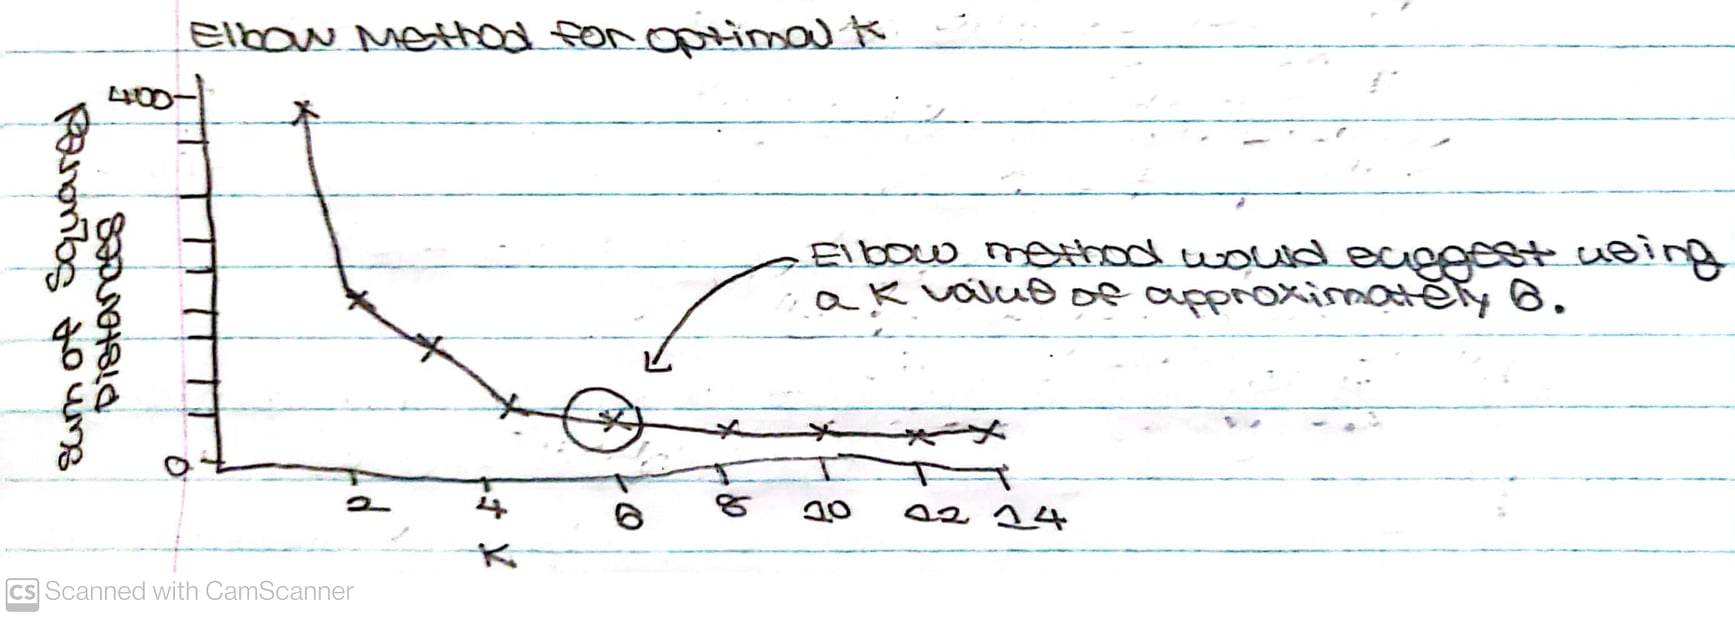 Elbow Method for optimal K
400
Sum of Squared
Distances
Elbow method would suggest using
a K value of approximately 6.
0
2 4 6 8 10 12 14
K
CS Scanned with CamScanner